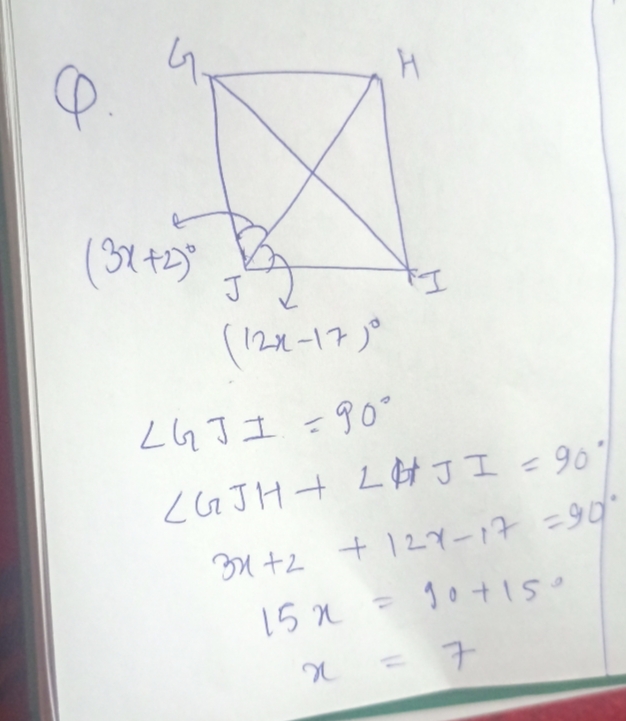 Q.
G
H
(3x+2)°
J
I
(12x-17)°
∠GJI = 90°
∠GJH + ∠HJI = 90°
3x+2 + 12x-17 = 90°
15x = 90+15°
x = 7